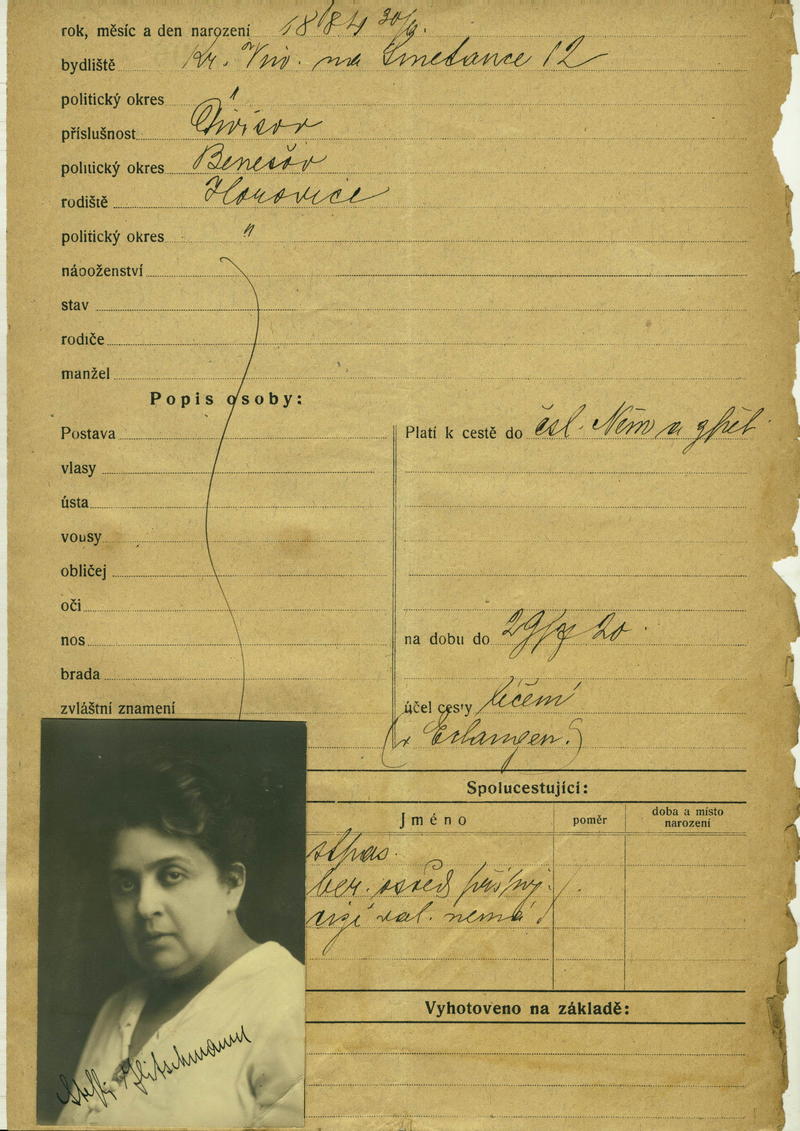 rok, měsíc a den narození 1884 30/9.
bydliště Kr. Vin. na Smetance 12
politický okres "
příslušnost Divišov
politický okres Benešov
rodiště Hořovice
politický okres "
náboženství
stav
rodiče
manžel
Popis osoby:
Postava
vlasy
ústa
vousy
obličej
oči
nos
brada
zvláštní znamení
Platí k cestě do čsl. Něm a zpět
na dobu do 29/ 20.
účel cesty léčení
(v Erlangen.)
Spolucestující:
Jméno
poměr
doba a místo narození
ber. osvěd
cizí val. nemá
Vyhotoveno na základě:
Steffi Flitschmann